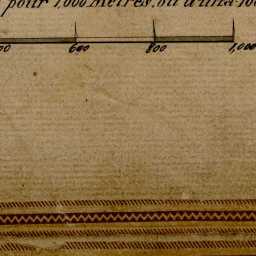 pour 1,000 Mètres, ou d'un à 10
00 600 800 1,000